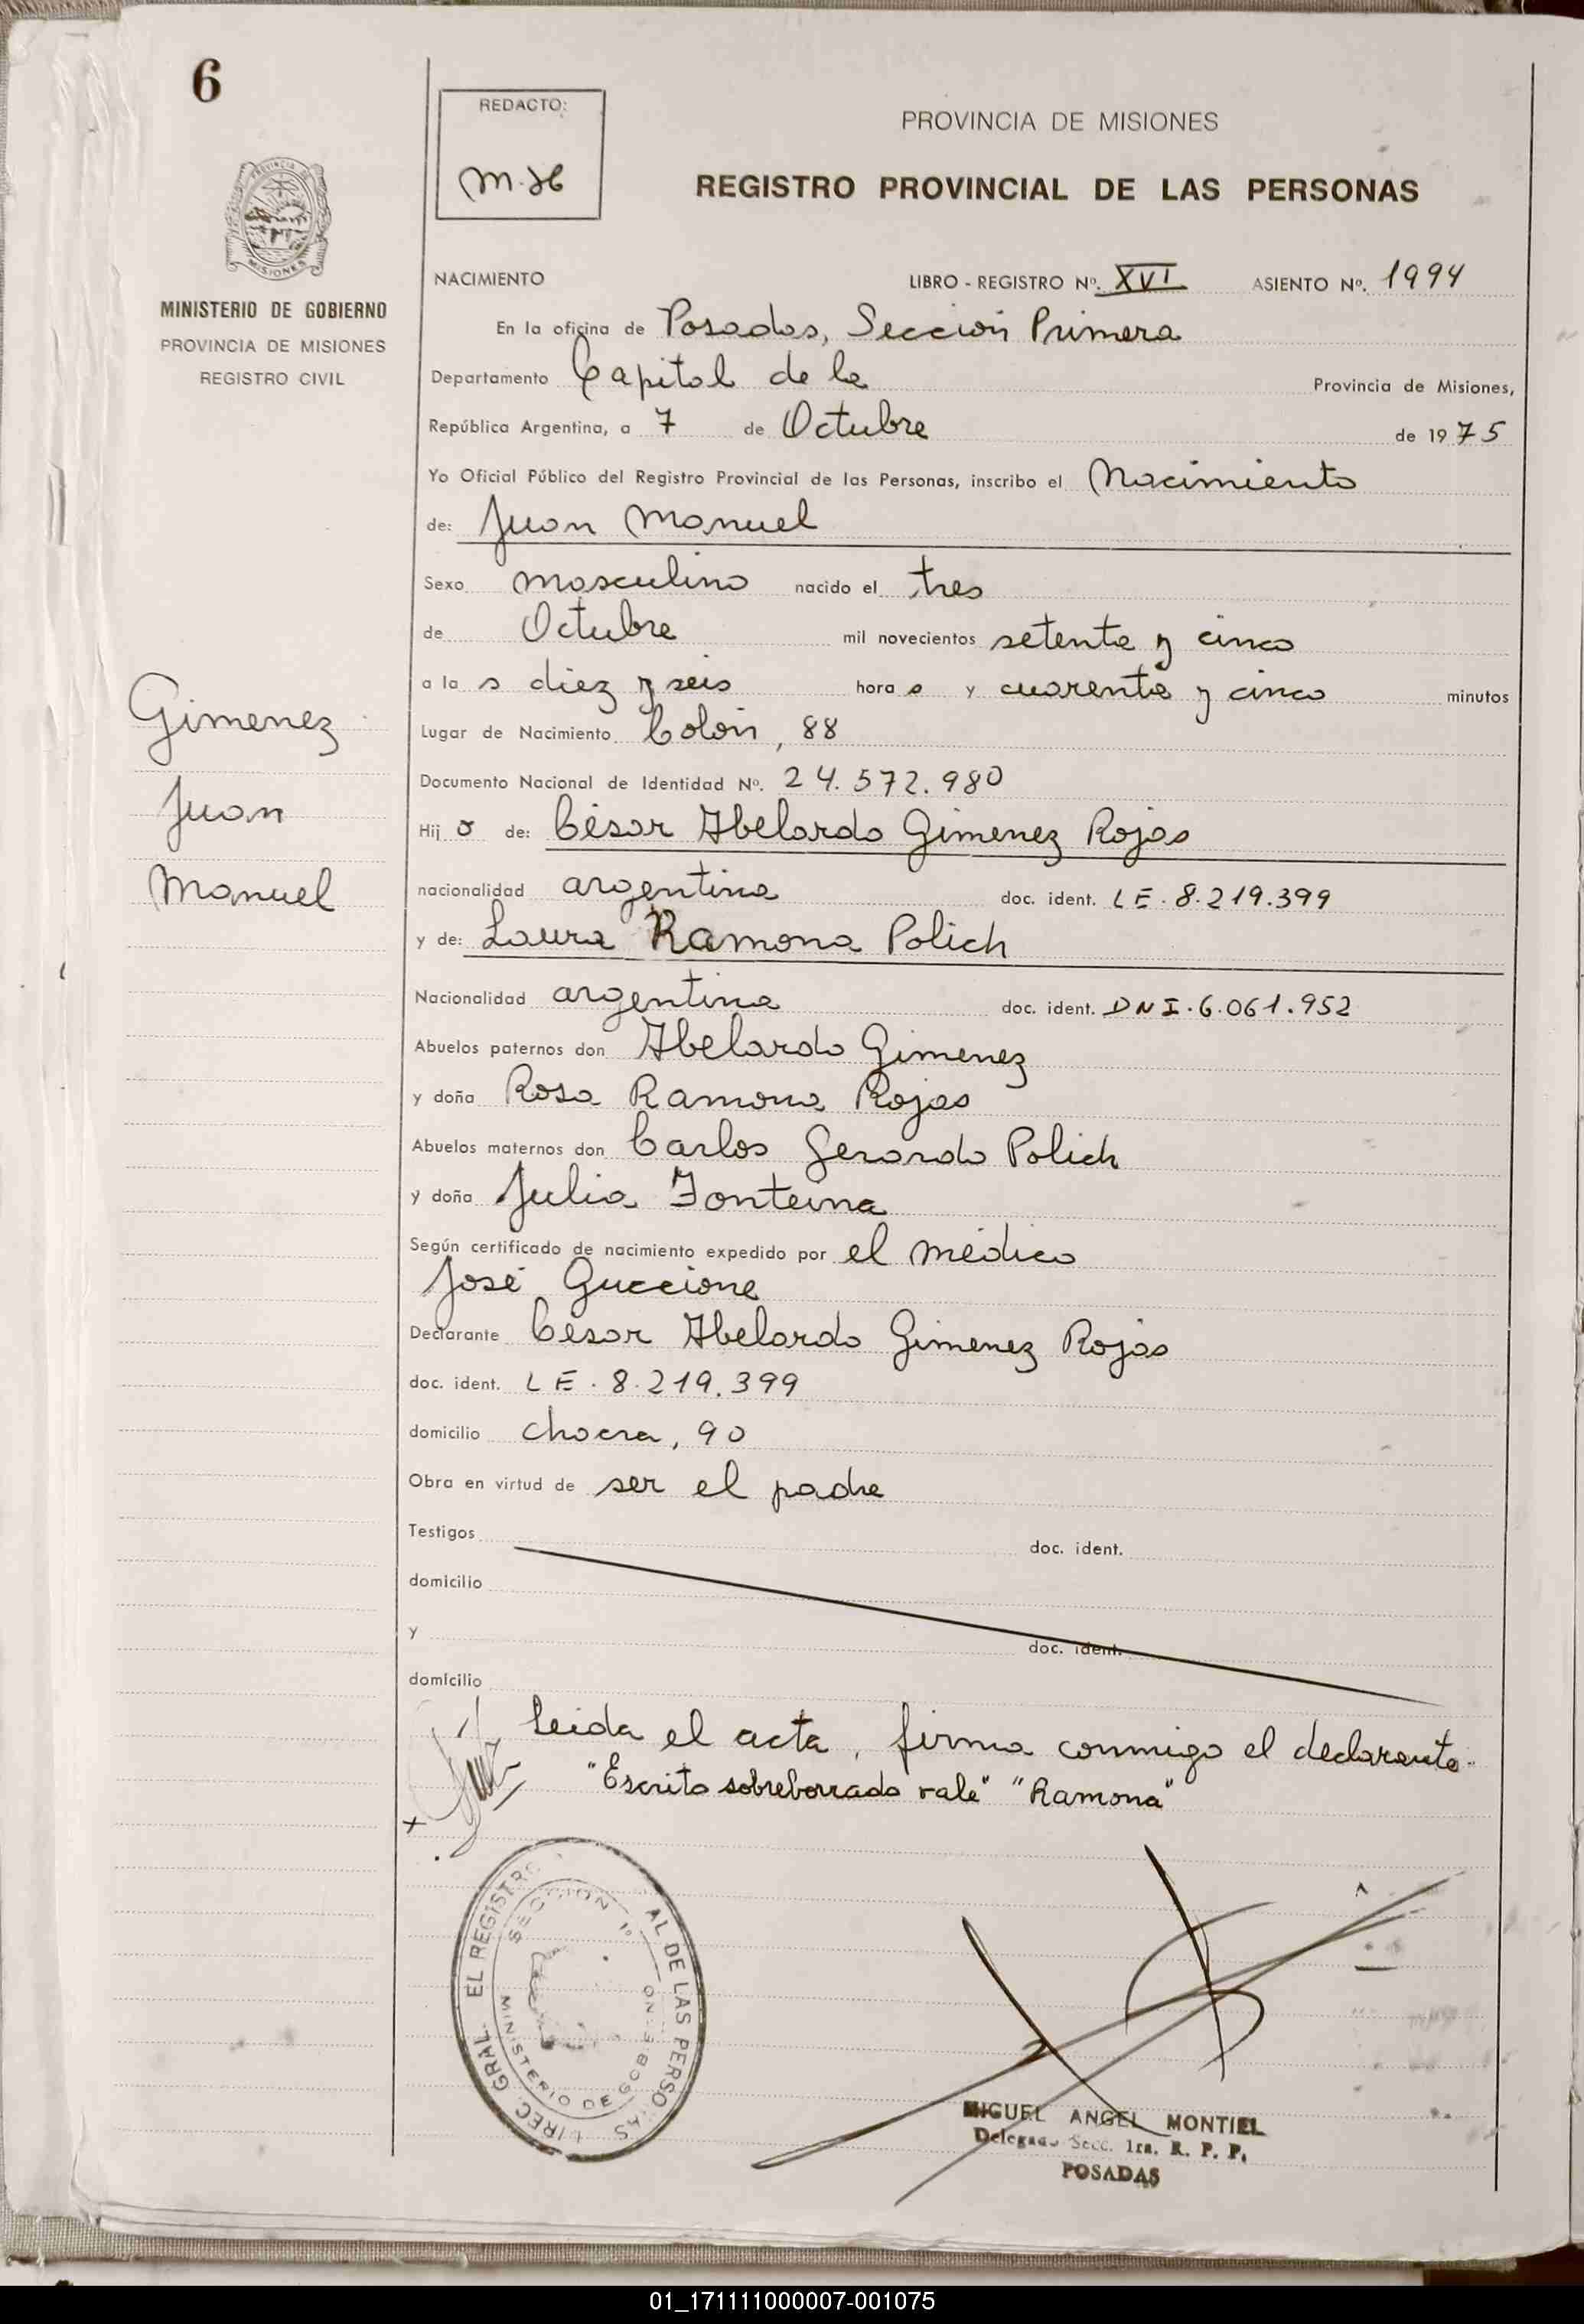 6
REDACTO:
PROVINCIA DE MISIONES
REGISTRO PROVINCIAL DE LAS PERSONAS
MISIONES
MINISTERIO DE GOBIERNO
PROVINCIA DE MISIONES
REGISTRO CIVIL
NACIMIENTO LIBRO - REGISTRO Nº. XVI ASIENTO Nº. 1994
En la oficina de Posadas, Sección Primera
Departamento Capital de la Provincia de Misiones,
República Argentina, a 7 de Octubre de 1975
Yo Oficial Público del Registro Provincial de las Personas, inscribo el Nacimiento
de: Juan Manuel
Sexo masculino nacido el tres
de Octubre mil novecientos setenta y cinco
a las diez y seis horas y cuarenta y cinco minutos
Lugar de Nacimiento Colón, 88
Documento Nacional de Identidad Nº. 24.572.980
Hijo de: César Abelardo Gimenez Rojas
nacionalidad argentina doc. ident. LE. 8.219.399
y de: Laura Ramona Polich
Nacionalidad argentina doc. ident. DNI. 6.061.952
Abuelos paternos don Abelardo Gimenez
y doña Rosa Ramona Rojas
Abuelos maternos don Carlos Gerardo Polich
y doña Julia Fonteina
Según certificado de nacimiento expedido por el médico
José Guccione
Declarante César Abelardo Gimenez Rojas
doc. ident. LE. 8.219.399
domicilio chacra, 90
Obra en virtud de ser el padre
Testigos doc. ident.
domicilio
y doc. ident.
domicilio
Gimenez
Juan
Manuel
Leida el acta, firma conmigo el declarante.
"Escrito sobreborrado vale" "Ramona"
SECCION 1º
MINISTERIO DE GOBIERNO
MIGUEL ANGEL MONTIEL
Delegado Secc. 1ra. R. P. P.
POSADAS
01_171111000007-001075